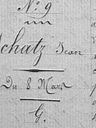 N.º 9
un
Schatz Jean
Du 2 Mars
G.